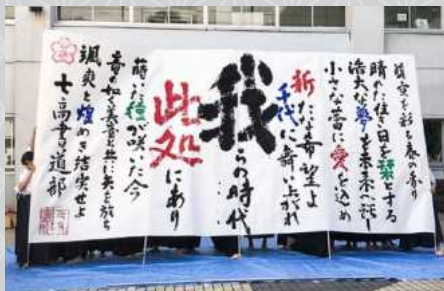 蒼空を彩る春の香り
晴れた佳き日を栞とする
浩大な夢を未来へ託し
小さな蕾に愛を込め
新たな希望よ
千代に舞い上がれ
我らの時代
此処にあり
蒔いた種が咲いた今
音の如く美音と共に矢を放ち
颯爽と煌めき結実せよ
七高書道部